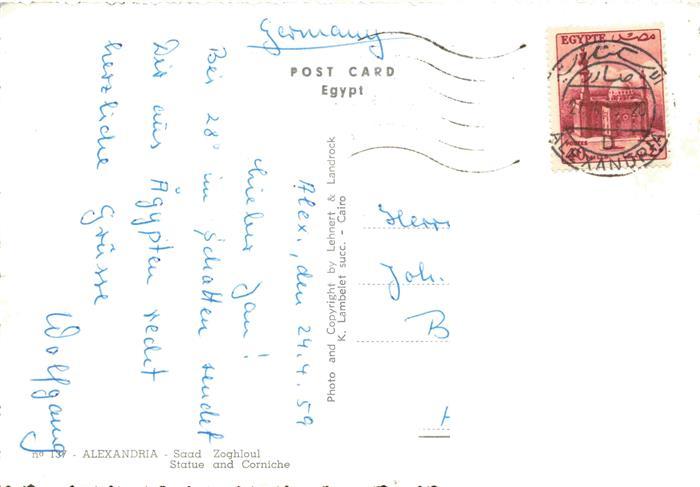 Germany
POST CARD
Egypt
EGYPTE مصر
ALEXANDRIA
D
Alex., den 24.4.59
Lieber Jan!
Bei 28° im Schatten sendet
Dir aus Ägypten recht
herzliche Grüsse
Wolfgang
Photo and Copyright by Lehnert & Landrock
K. Lambelet succ. - Cairo
Herrn
Joh.
B
nº 137 - ALEXANDRIA - Saad Zoghloul
Statue and Corniche